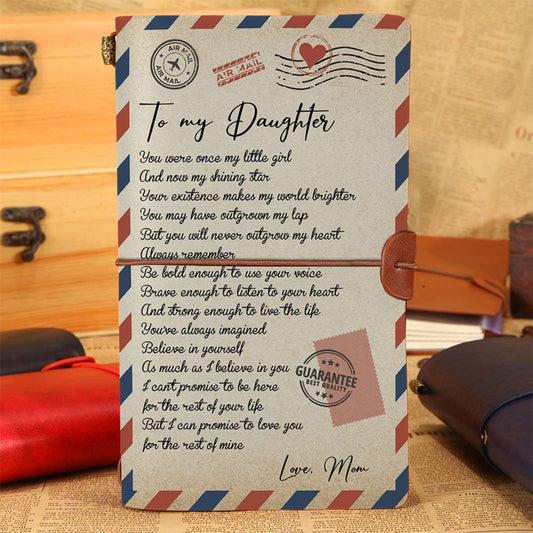 AIR MAIL
AIR MAIL
AIR MAIL
To my Daughter
You were once my little girl
And now my shining star
Your existence makes my world brighter
You may have outgrown my lap
But you will never outgrow my heart
Always remember
Be bold enough to use your voice
Brave enough to listen to your heart
And strong enough to live the life
You've always imagined
Believe in yourself
As much as I believe in you
I can't promise to be here
for the rest of your life
But I can promise to love you
for the rest of mine
GUARANTEE
BEST QUALITY
Love, Mom